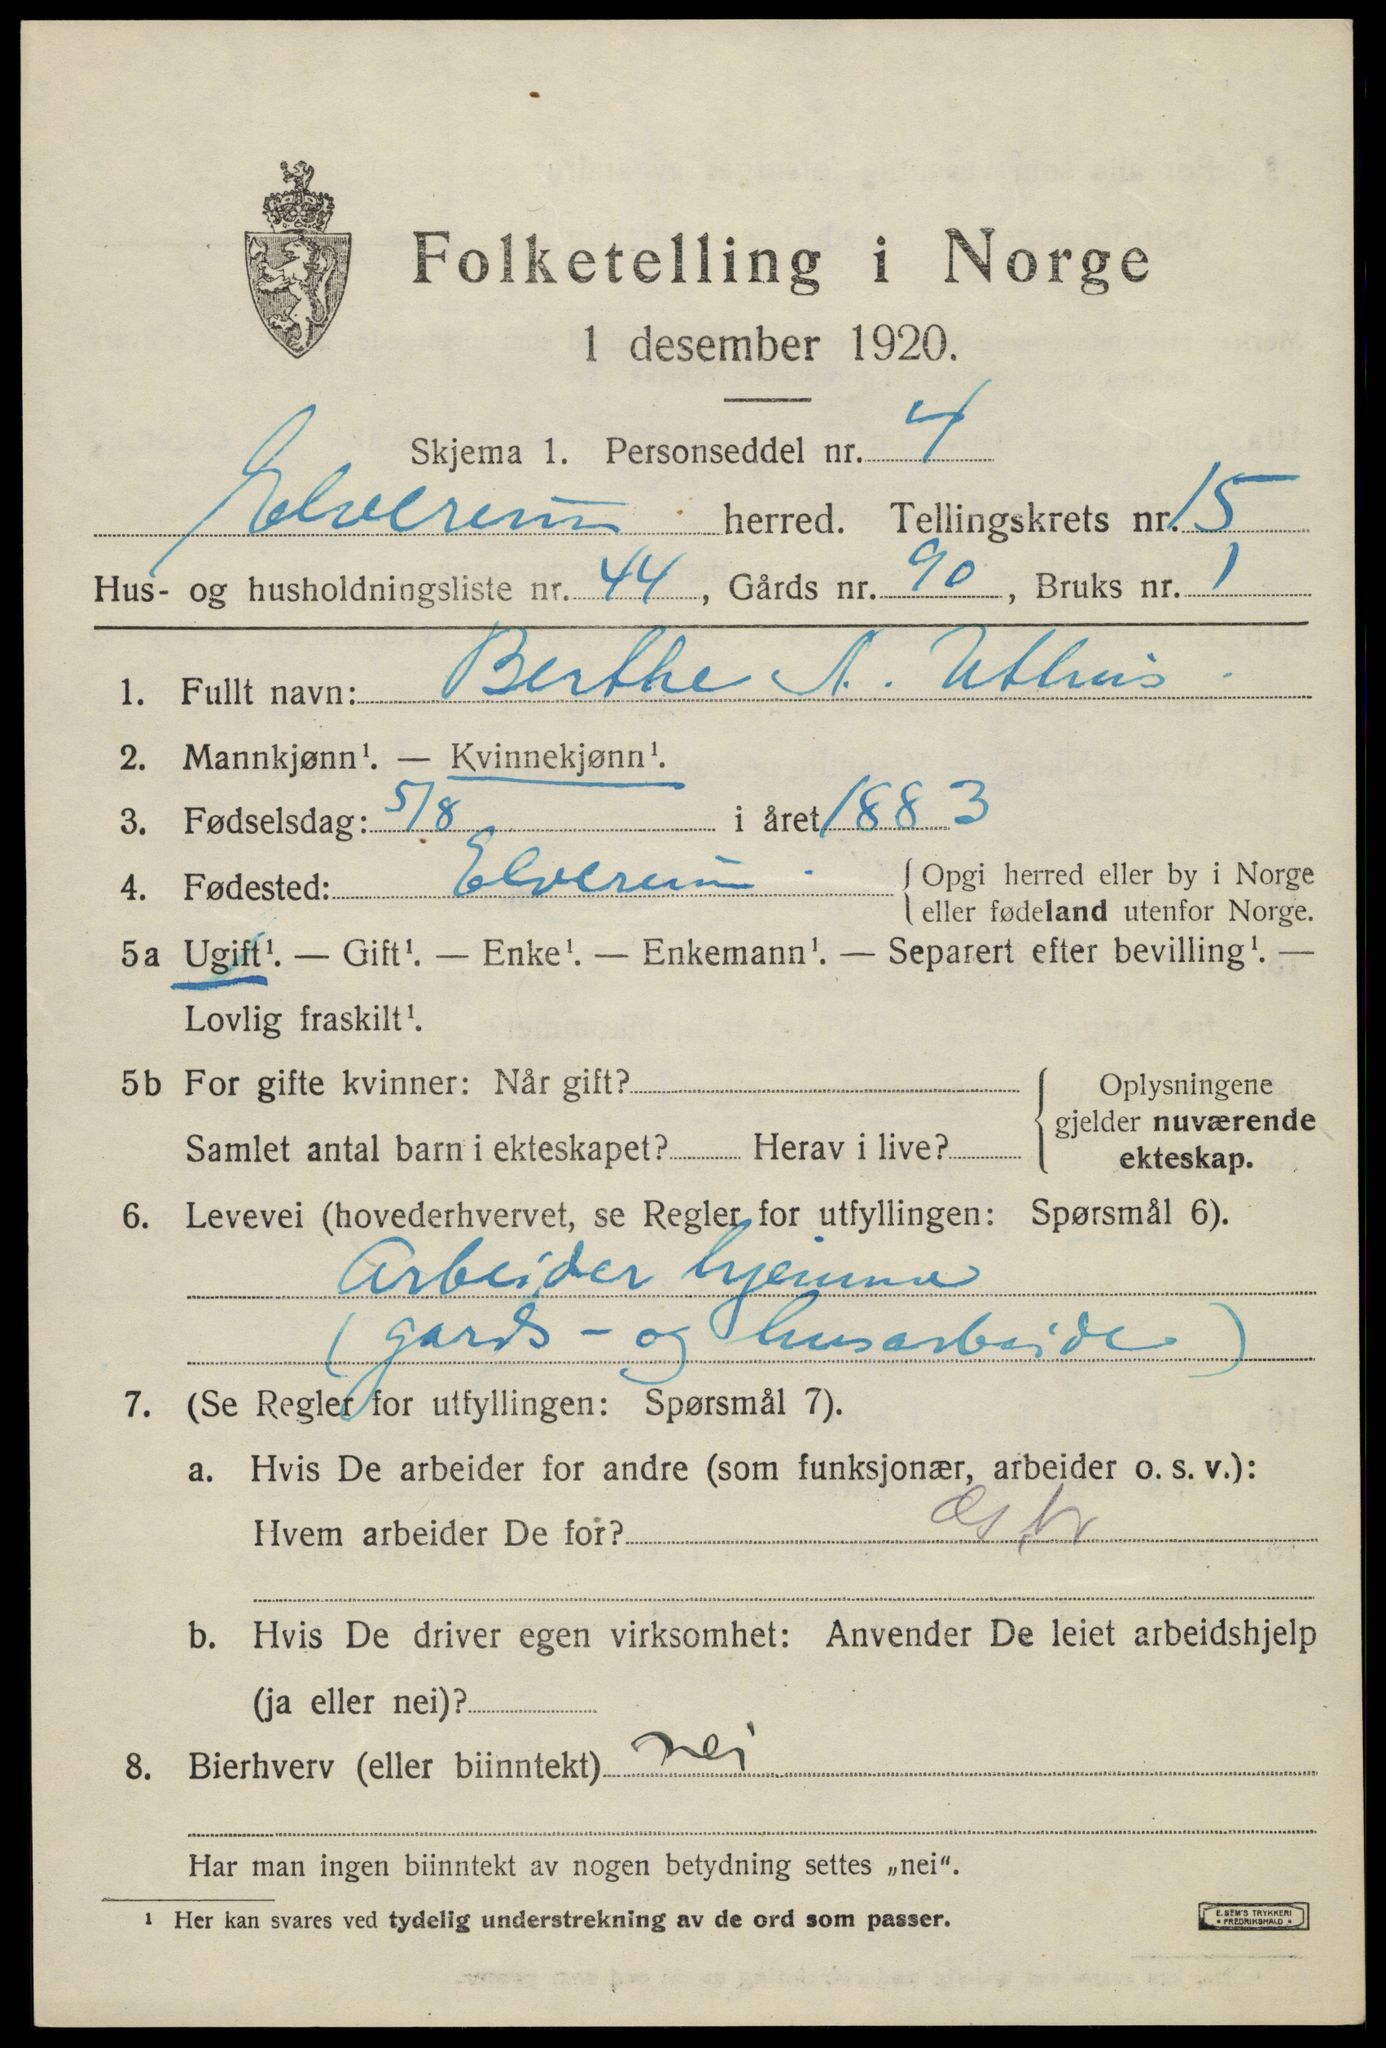 Folketelling i Norge
1 desember 1920.
Skjema 1. Personseddel nr. 4
Elverum herred. Tellingskrets nr. 15
Hus- og husholdningsliste nr. 44, Gårds nr. 90, Bruks nr. 1
1. Fullt navn: Berthe A. Uthus
2. Mannkjønn¹. — Kvinnekjønn¹.
3. Fødselsdag: 5/8 i året 1883
4. Fødested: Elverum { Opgi herred eller by i Norge
eller fødeland utenfor Norge.
5a Ugift¹. — Gift¹. — Enke¹. — Enkemann¹. — Separert efter bevilling¹. —
Lovlig fraskilt¹.
5b For gifte kvinner: Når gift? { Oplysningene
gjelder nuværende
Samlet antal barn i ekteskapet? Herav i live?
ekteskap.
6. Levevei (hovederhvervet, se Regler for utfyllingen: Spørsmål 6).
Arbeider hjemme
(gards- og husarbeide)
7. (Se Regler for utfyllingen: Spørsmål 7).
a. Hvis De arbeider for andre (som funksjonær, arbeider o. s. v.):
Hvem arbeider De for?
b. Hvis De driver egen virksomhet: Anvender De leiet arbeidshjelp
(ja eller nei)?
8. Bierhverv (eller biinntekt) nei
Har man ingen biinntekt av nogen betydning settes „nei“.
¹ Her kan svares ved tydelig understrekning av de ord som passer.
E. SEM'S TRYKKERI
• FREDRIKSHALD •